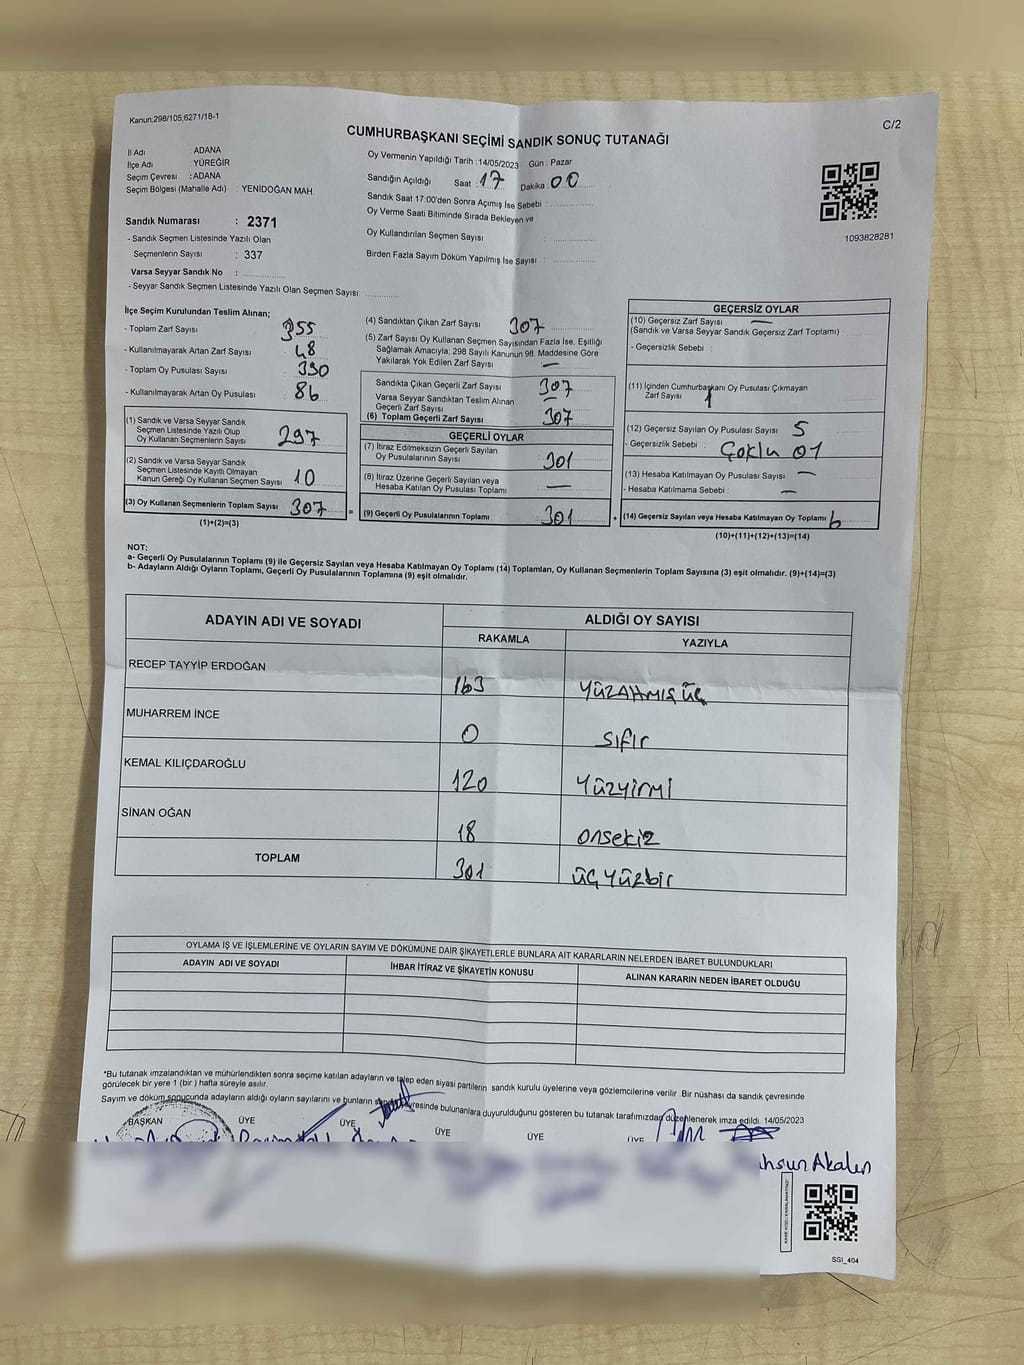 Kanun:298/105;6271/18-1
C/2
CUMHURBAŞKANI SEÇİMİ SANDIK SONUÇ TUTANAĞI
İl Adı : ADANA
İlçe Adı : YÜREĞİR
Seçim Çevresi : ADANA
Seçim Bölgesi (Mahalle Adı) : YENİDOĞAN MAH.
Sandık Numarası : 2371
- Sandık Seçmen Listesinde Yazılı Olan
Seçmenlerin Sayısı : 337
Varsa Seyyar Sandık No :
- Seyyar Sandık Seçmen Listesinde Yazılı Olan Seçmen Sayısı:
Oy Vermenin Yapıldığı Tarih :14/05/2023 Gün : Pazar
Sandığın Açıldığı Saat : 17 Dakika : 00
Sandık Saat 17:00'den Sonra Açımış İse Sebebi :
Oy Verme Saati Bitiminde Sırada Bekleyen ve
Oy Kullandırılan Seçmen Sayısı :
Birden Fazla Sayım Döküm Yapılmış İse Sayısı :
1093828281
İlçe Seçim Kurulundan Teslim Alınan;
- Toplam Zarf Sayısı : 355
- Kullanılmayarak Artan Zarf Sayısı : 48
- Toplam Oy Pusulası Sayısı : 390
- Kullanılmayarak Artan Oy Pusulası : 86
(1) Sandık ve Varsa Seyyar Sandık
Seçmen Listesinde Yazılı Olup
Oy Kullanan Seçmenlerin Sayısı 297
(2) Sandık ve Varsa Seyyar Sandık
Seçmen Listesinde Kayıtlı Olmayan
Kanun Gereği Oy Kullanan Seçmen Sayısı 10
(3) Oy Kullanan Seçmenlerin Toplam Sayısı 307
(1)+(2)=(3)
(4) Sandıktan Çıkan Zarf Sayısı 307
(5) Zarf Sayısı Oy Kullanan Seçmen Sayısından Fazla İse, Eşitliği
Sağlamak Amacıyla; 298 Sayılı Kanunun 98. Maddesine Göre
Yakılarak Yok Edilen Zarf Sayısı —
Sandıkta Çıkan Geçerli Zarf Sayısı 307
Varsa Seyyar Sandıktan Teslim Alınan
Geçerli Zarf Sayısı —
(6) Toplam Geçerli Zarf Sayısı 307
GEÇERLİ OYLAR
(7) İtiraz Edilmeksizin Geçerli Sayılan
Oy Pusulalarının Sayısı 301
(8) İtiraz Üzerine Geçerli Sayılan veya
Hesaba Katılan Oy Pusulası Toplamı —
= (9) Geçerli Oy Pusulalarının Toplamı 301
GEÇERSİZ OYLAR
(10) Geçersiz Zarf Sayısı —
(Sandık ve Varsa Seyyar Sandık Geçersiz Zarf Toplamı) :
- Geçersizlik Sebebi :
(11) İçinden Cumhurbaşkanı Oy Pusulası Çıkmayan
Zarf Sayısı 1
(12) Geçersiz Sayılan Oy Pusulası Sayısı 5
- Geçersizlik Sebebi : Çoklu oy
(13) Hesaba Katılmayan Oy Pusulası Sayısı —
- Hesaba Katılmama Sebebi : —
+ (14) Geçersiz Sayılan veya Hesaba Katılmayan Oy Toplamı 6
(10)+(11)+(12)+(13)=(14)
NOT:
a- Geçerli Oy Pusulalarının Toplamı (9) ile Geçersiz Sayılan veya Hesaba Katılmayan Oy Toplamı (14) Toplamları, Oy Kullanan Seçmenlerin Toplam Sayısına (3) eşit olmalıdır. (9)+(14)=(3)
b- Adayların Aldığı Oyların Toplamı, Geçerli Oy Pusulalarının Toplamına (9) eşit olmalıdır.
ADAYIN ADI VE SOYADI ALDIĞI OY SAYISI
RAKAMLA YAZIYLA
RECEP TAYYİP ERDOĞAN 163 YÜZAHMIŞ ÜÇ
MUHARREM İNCE 0 sıfır
KEMAL KILIÇDAROĞLU 120 Yüzyirmi
SİNAN OĞAN 18 onsekiz
TOPLAM 301 üçyüzbir
OYLAMA İŞ VE İŞLEMLERİNE VE OYLARIN SAYIM VE DÖKÜMÜNE DAİR ŞİKAYETLERLE BUNLARA AİT KARARLARIN NELERDEN İBARET BULUNDUKLARI
ADAYIN ADI VE SOYADI İHBAR İTİRAZ VE ŞİKAYETİN KONUSU ALINAN KARARIN NEDEN İBARET OLDUĞU
*Bu tutanak imzalandıktan ve mühürlendikten sonra seçime katılan adayların ve talep eden siyasi partilerin sandık kurulu üyelerine veya gözlemcilerine verilir .Bir nüshası da sandık çevresinde
görülecek bir yere 1 (bir ) hafta süreyle asılır.
Sayım ve döküm sonucunda adayların aldığı oyların sayılarını ve bunların çevresinde bulunanlara duyurulduğunu gösteren bu tutanak tarafımızdan düzenlenerek imza edildi. 14/05/2023
BAŞKAN ÜYE ÜYE ÜYE ÜYE ÜYE
Akalın
SSI_404